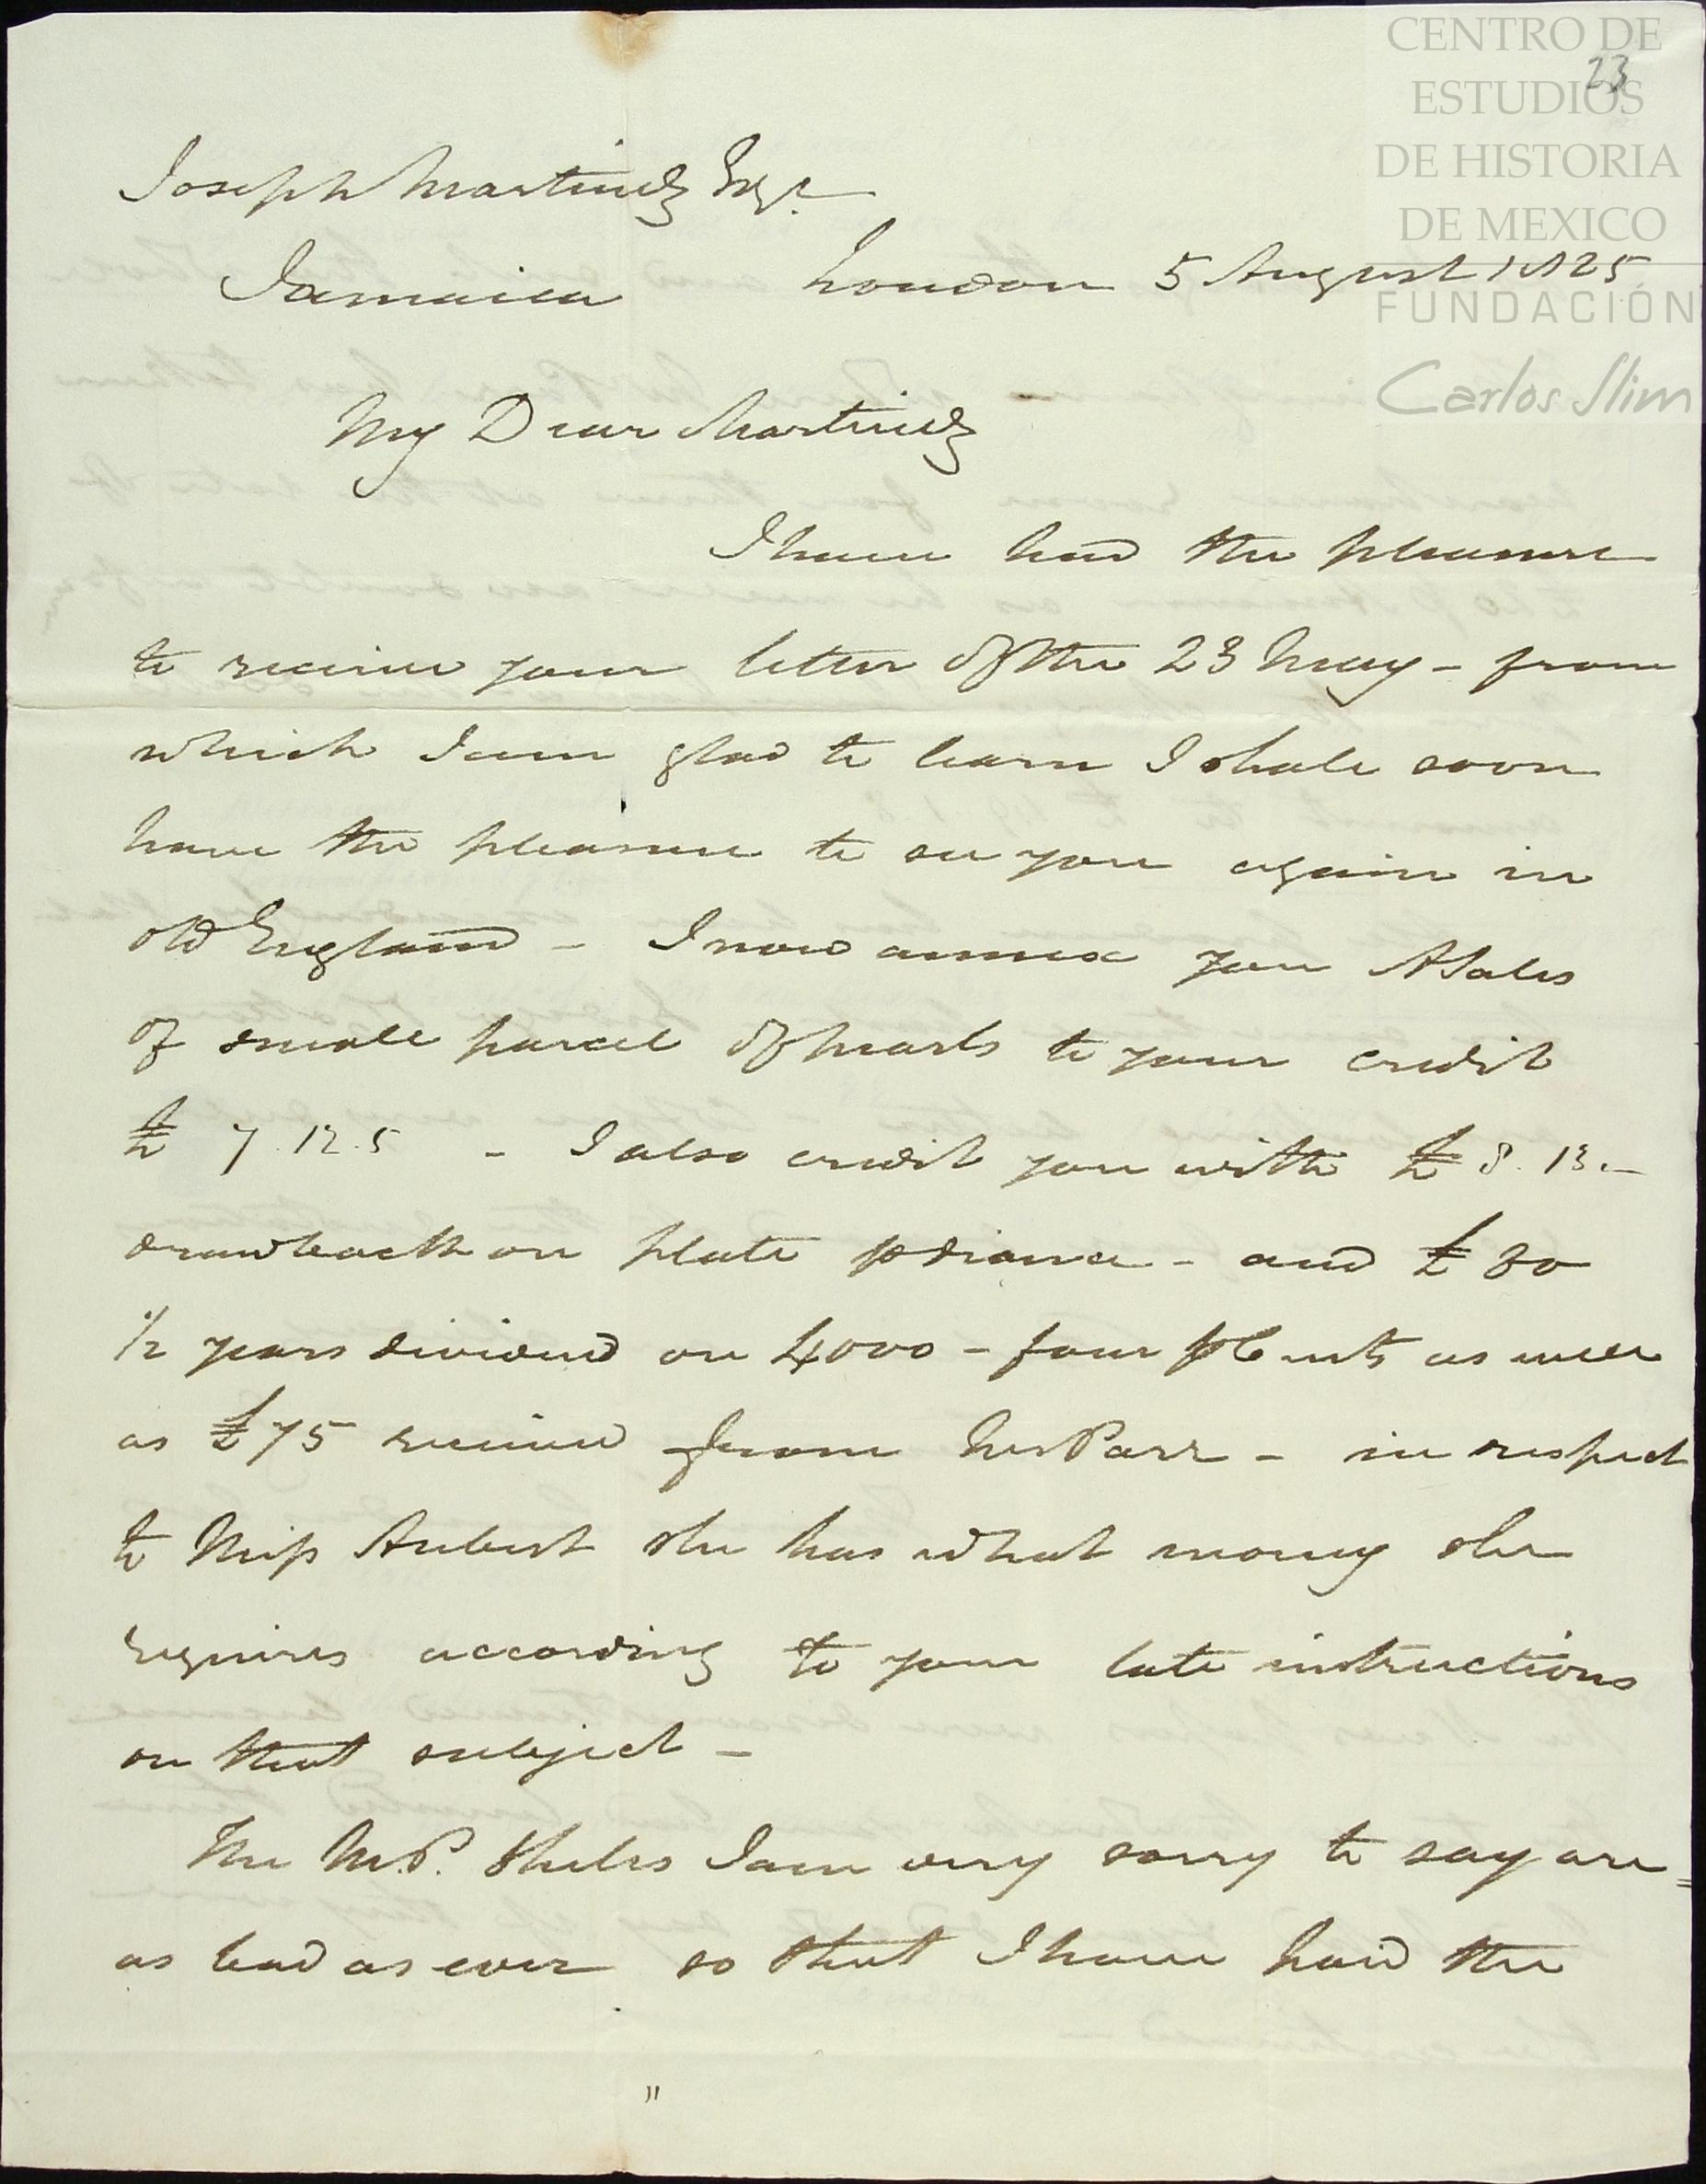 CENTRO DE
ESTUDIOS
DE HISTORIA
DE MEXICO
FUNDACIÓN
Carlos Slim
23
Joseph Martinez Esqr.
Jamaica London 5 August 1825
My Dear Martinez
I have had the pleasure
to receive your letter of the 23 May - from
which I am glad to learn I shall soon
have the pleasure to see you again in
old England - I now annex you A Sales
of small parcel of pearls to your credit
£ 7.12.5 - I also credit you with £ 8.13.-
drawback on plate p Diana - and £ 80
1/2 years dividend on 4000 - four p Cents as well
as £75 received from Mr Parr - in respect
to Miss Aubert she has what money she
requires according to your late instructions
on that subject -
The M.P. Shells I am very sorry to say are
as bad as ever so that I have had the
"